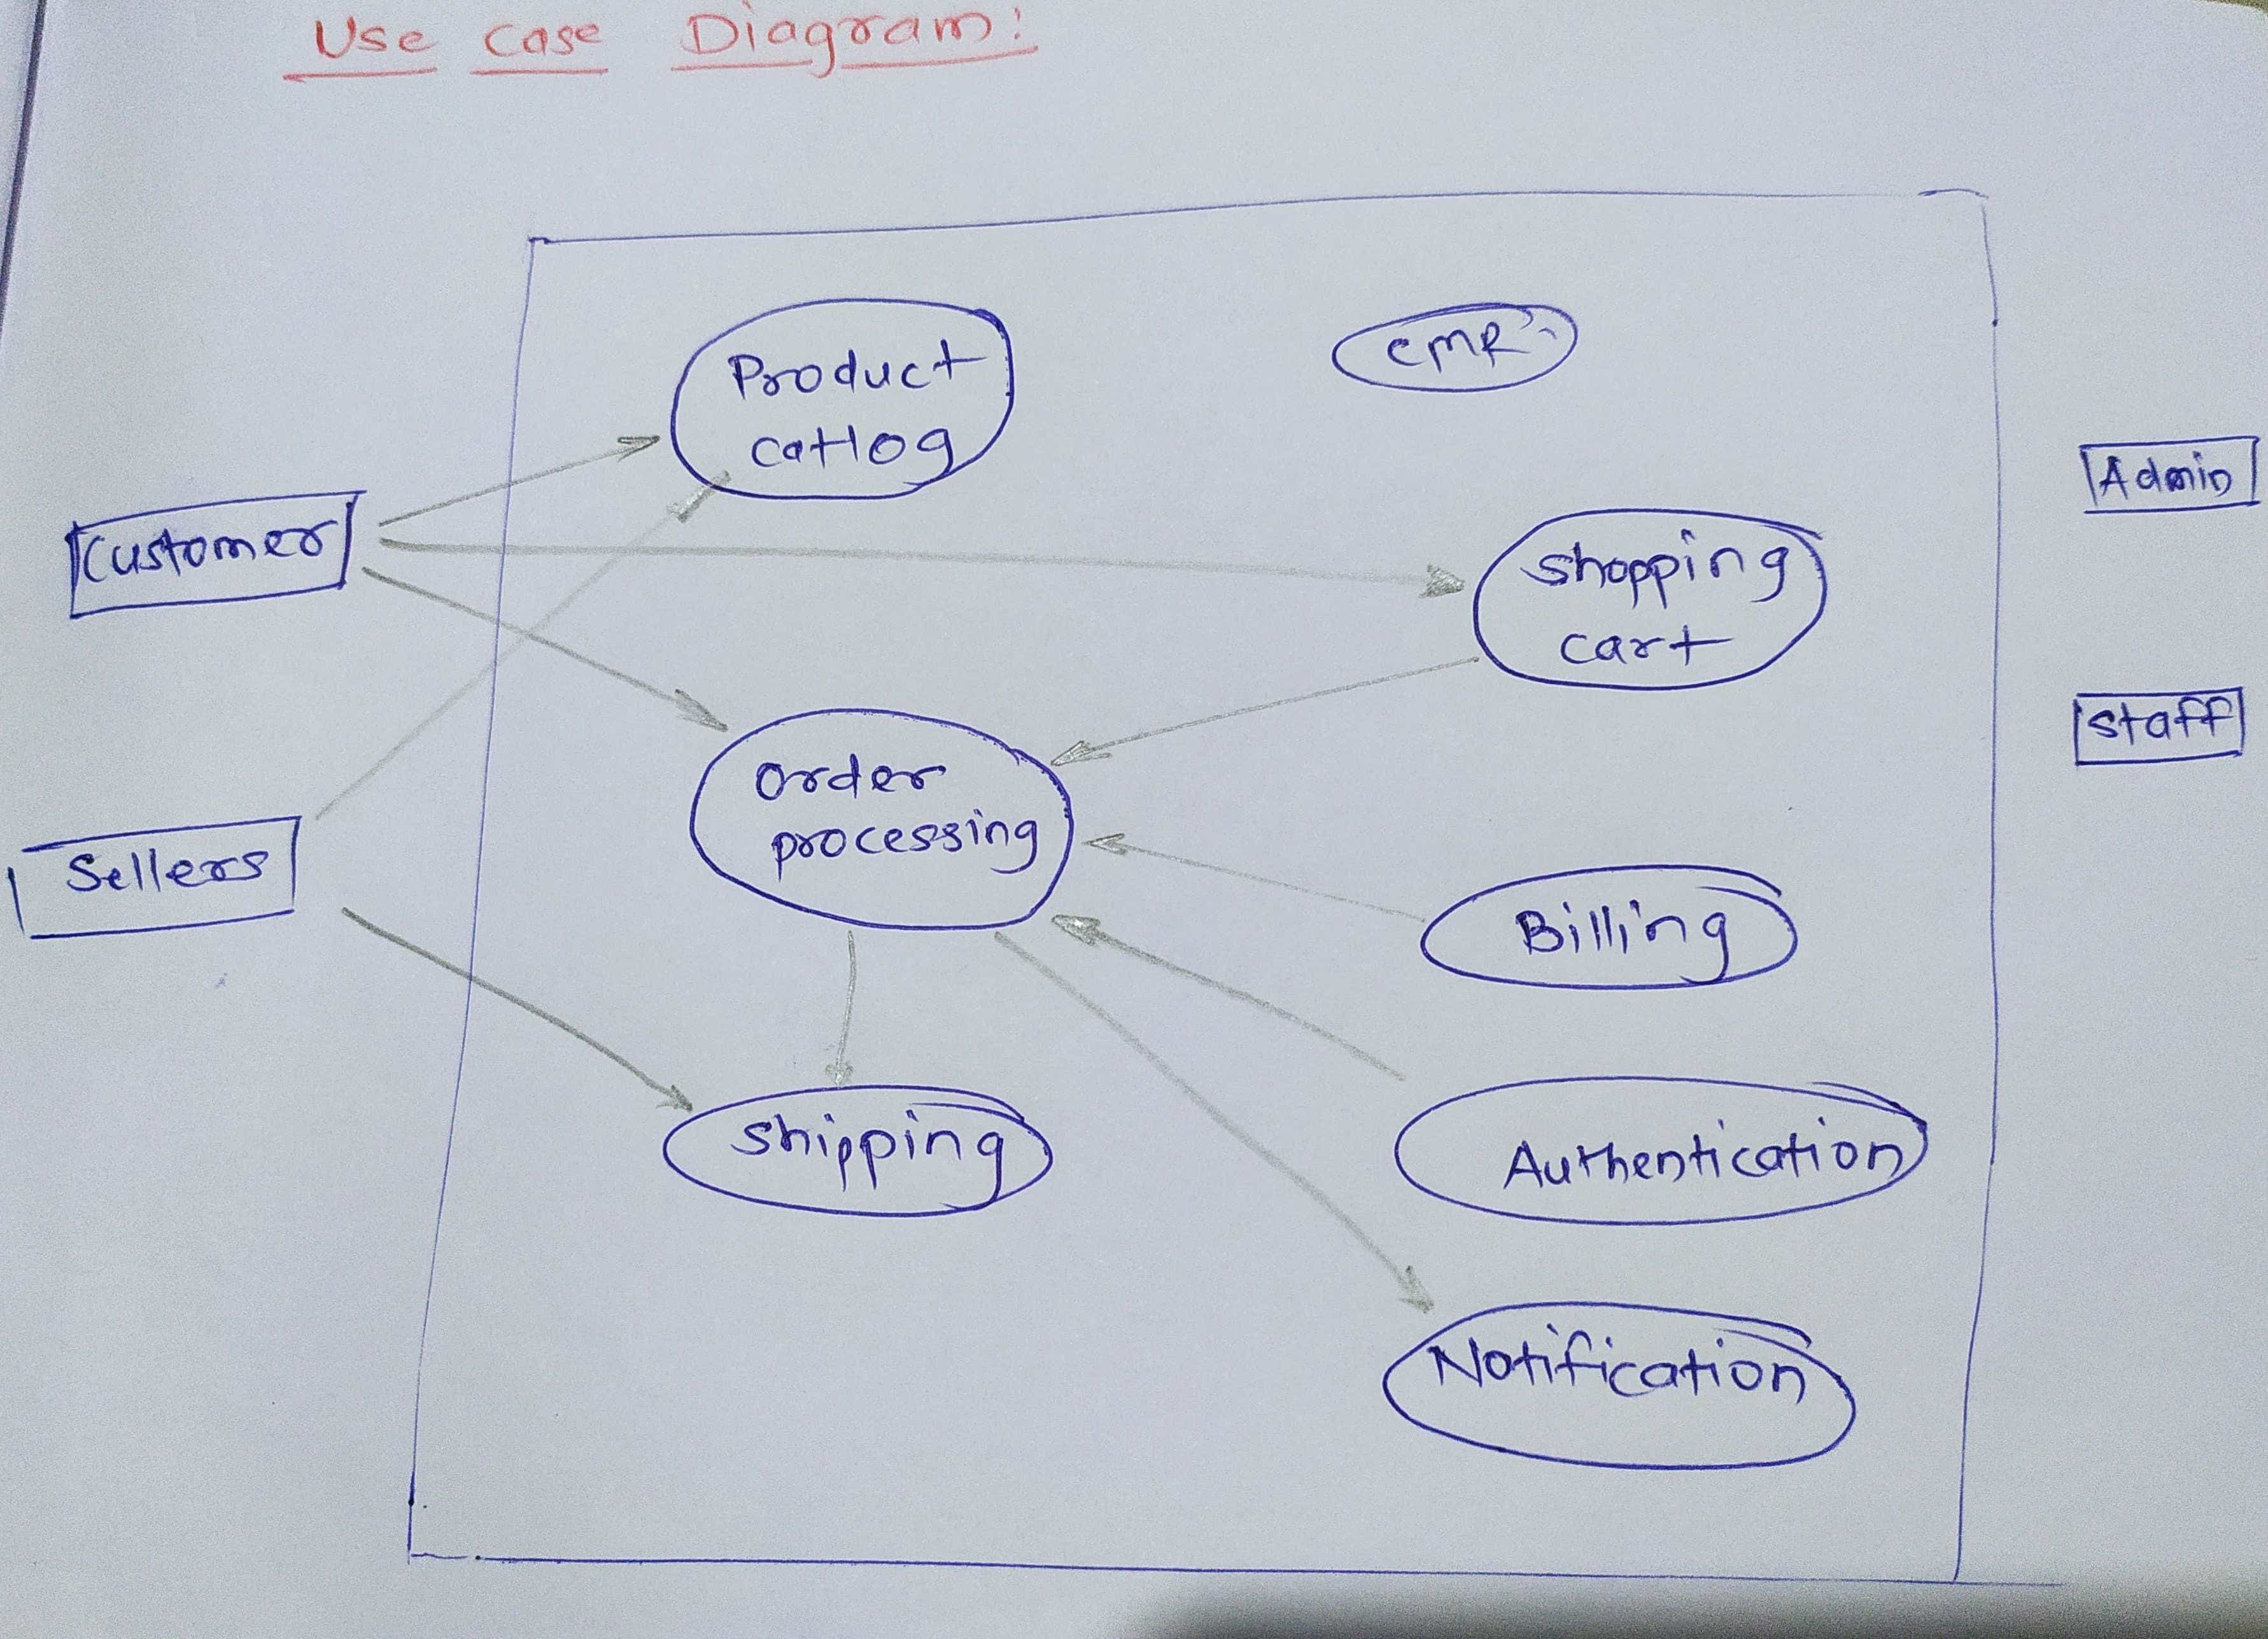 Use Case Diagram:
Product
catlog
CMR
Customer
Admin
Shopping
cart
Staff
Order
processing
Sellers
Billing
Shipping
Authentication
Notification